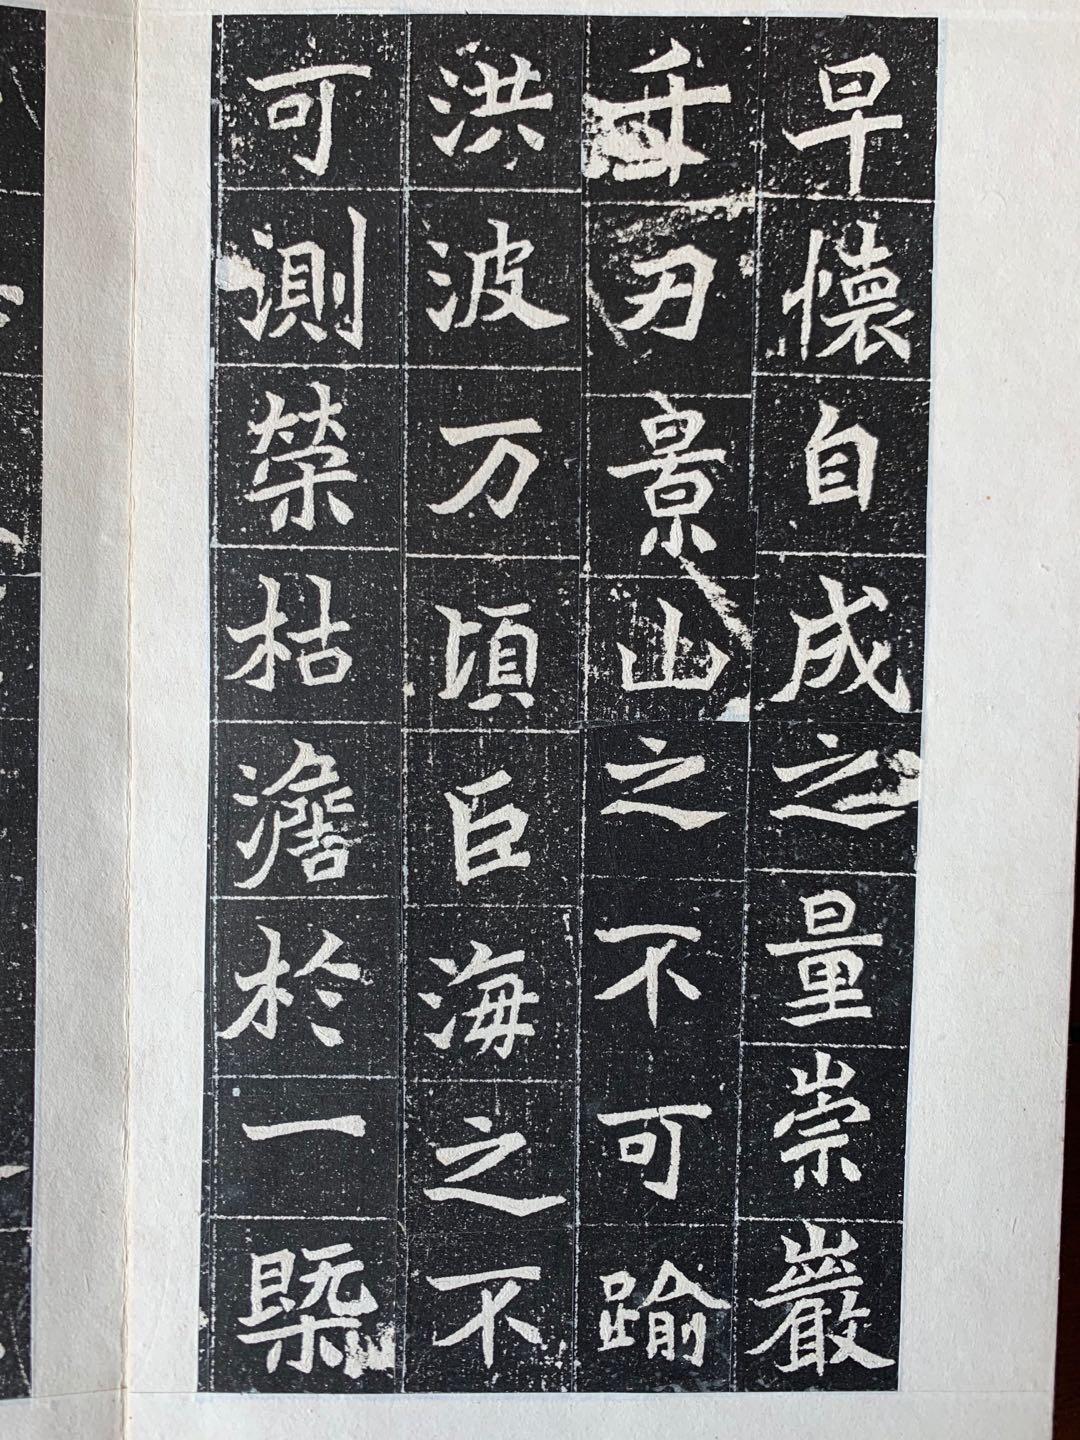 早懷自成之量崇巖
千刃景山之不可踰
洪波万頃巨海之不
可測榮枯澹於一槩